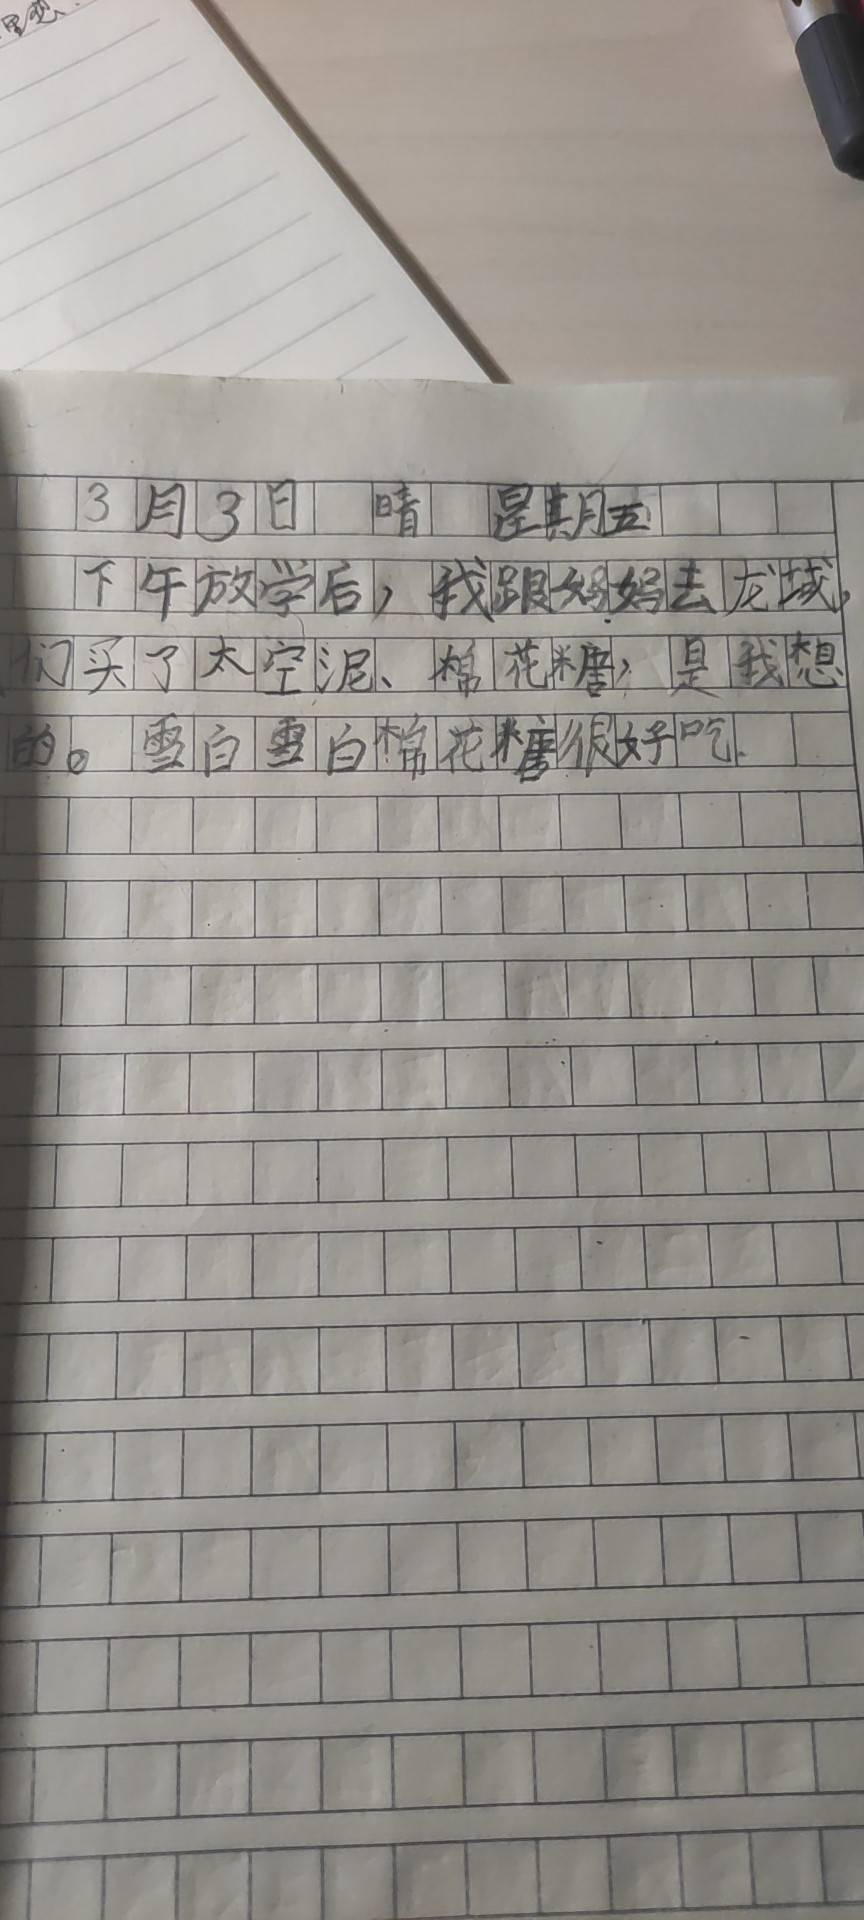 理想.
3月3日 晴 星期五
下午放学后，我跟妈妈去龙城，
们买了太空泥、棉花糖，是我想
的。雪白雪白棉花糖很好吃.